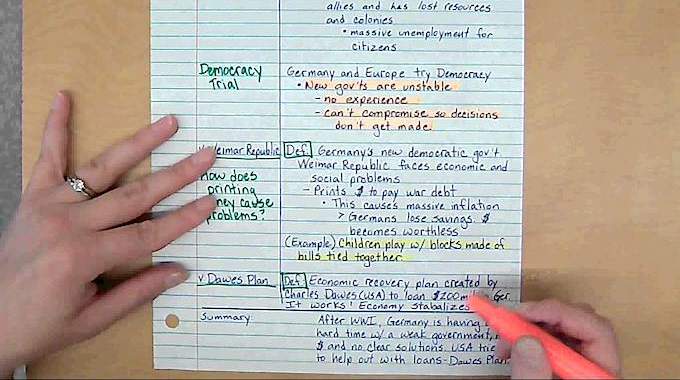 allies and has lost resources
and colonies
• massive unemployment for
citizens
Democracy
Trial
Germany and Europe try Democracy
• New gov'ts are unstable
- no experience
- can't compromise so decisions
don't get made.
Weimar Republic
Def. Germany's new democratic gov't
Weimar Republic faces economic and
social problems
- Prints $ to pay war debt
• This causes massive inflation
> Germans lose savings. $
becomes worthless
(Example) Children play w/ blocks made of
bills tied together
How does
printing
cause
problems?
v Dawes Plan
Def. Economic recovery plan created by
Charles Dawes (USA) to loan $200 Ger.
It works! Economy stabalizes
Summary
After WWI, Germany is having
hard time w/ a weak government,
$ and no clear solutions. USA
to help out with loans - Dawes Plan.